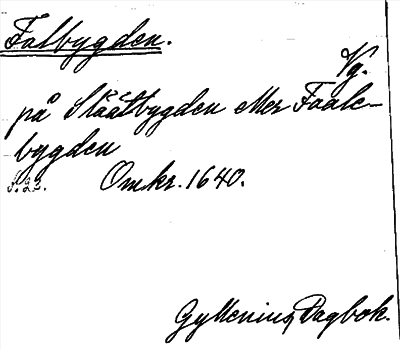 Falbygden.
Vg.
på Slätbygden eller Faale-
bygden
Omkr. 1640.
Gyllenius, Dagbok.